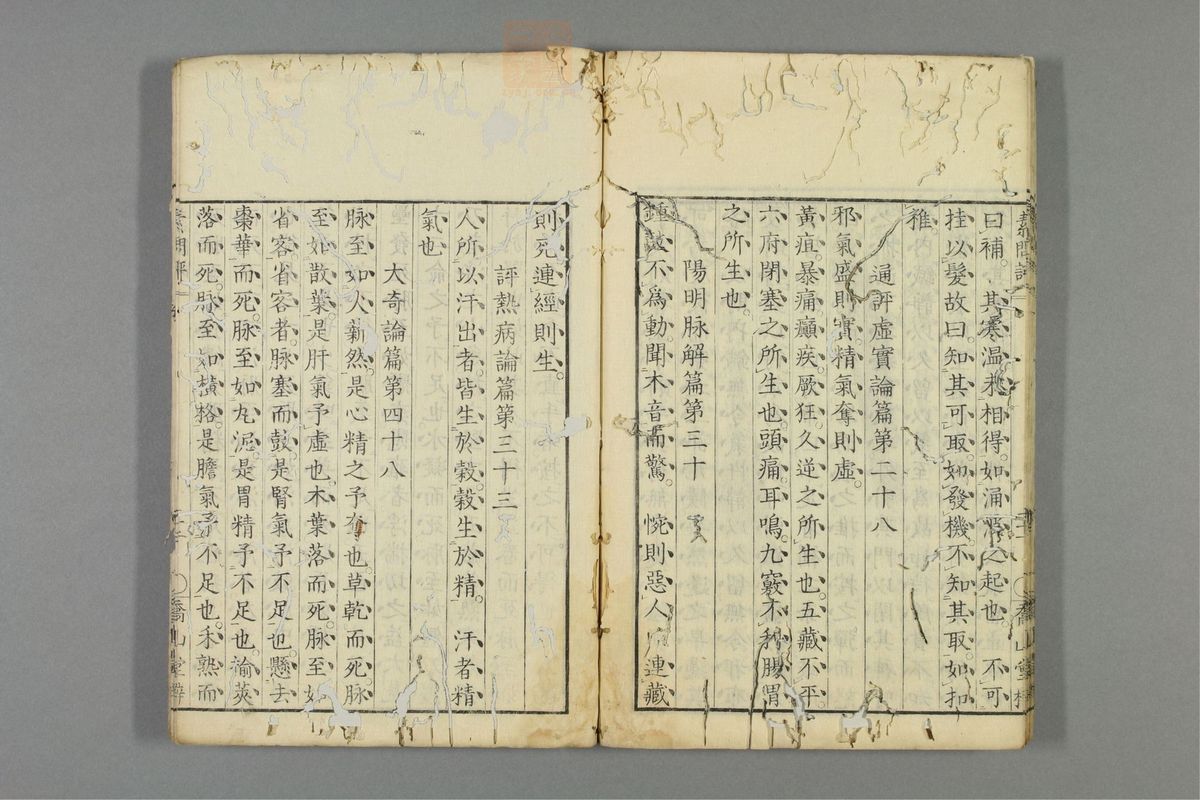 曰補。其寒温未相得。如涌波之起也。不可
挂以髮故曰。知其可取。如發機。不知其取。如扣
椎
通評虛實論篇第二十八
邪氣盛則實。精氣奪則虛。
黃疸。暴痛。癲疾。厥狂。久逆之所生也。五藏不平。
六府閉塞之所生也。頭痛。耳鳴。九竅不利。腸胃
之所生也。
陽明脉解篇第三十
鍾鼓不爲動。聞木音而驚。惋則惡人
連藏
則死。連經則生。
評熱病論篇第三十三
人所以汗出者。皆生於穀。穀生於精。汗者精
氣也
大奇論篇第四十八
脉至如火薪然。是心精之予奪也。草乾而死。脉
至如散葉。是肝氣予虛也。木葉落而死。脉至如
省客。省客者。脉塞而鼓。是腎氣予不足也。懸去
棗華而死。脉至如丸泥。是胃精予不足也。渝莢
落而死。脉至如横格。是膽氣予不足也。禾熟而
素問評
喬山堂